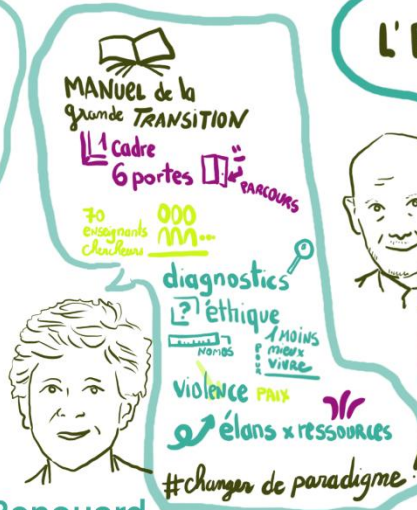 L'
MANUEL de la
grande TRANSITION
1 cadre
6 portes
PARCOURS
70
enseignants
chercheurs
diagnostics
? éthique
NOMOS
1 MOINS
POUR MIEUX
VIVRE
violence PAIX
élans x ressources
#changer de paradigme !
Renouard